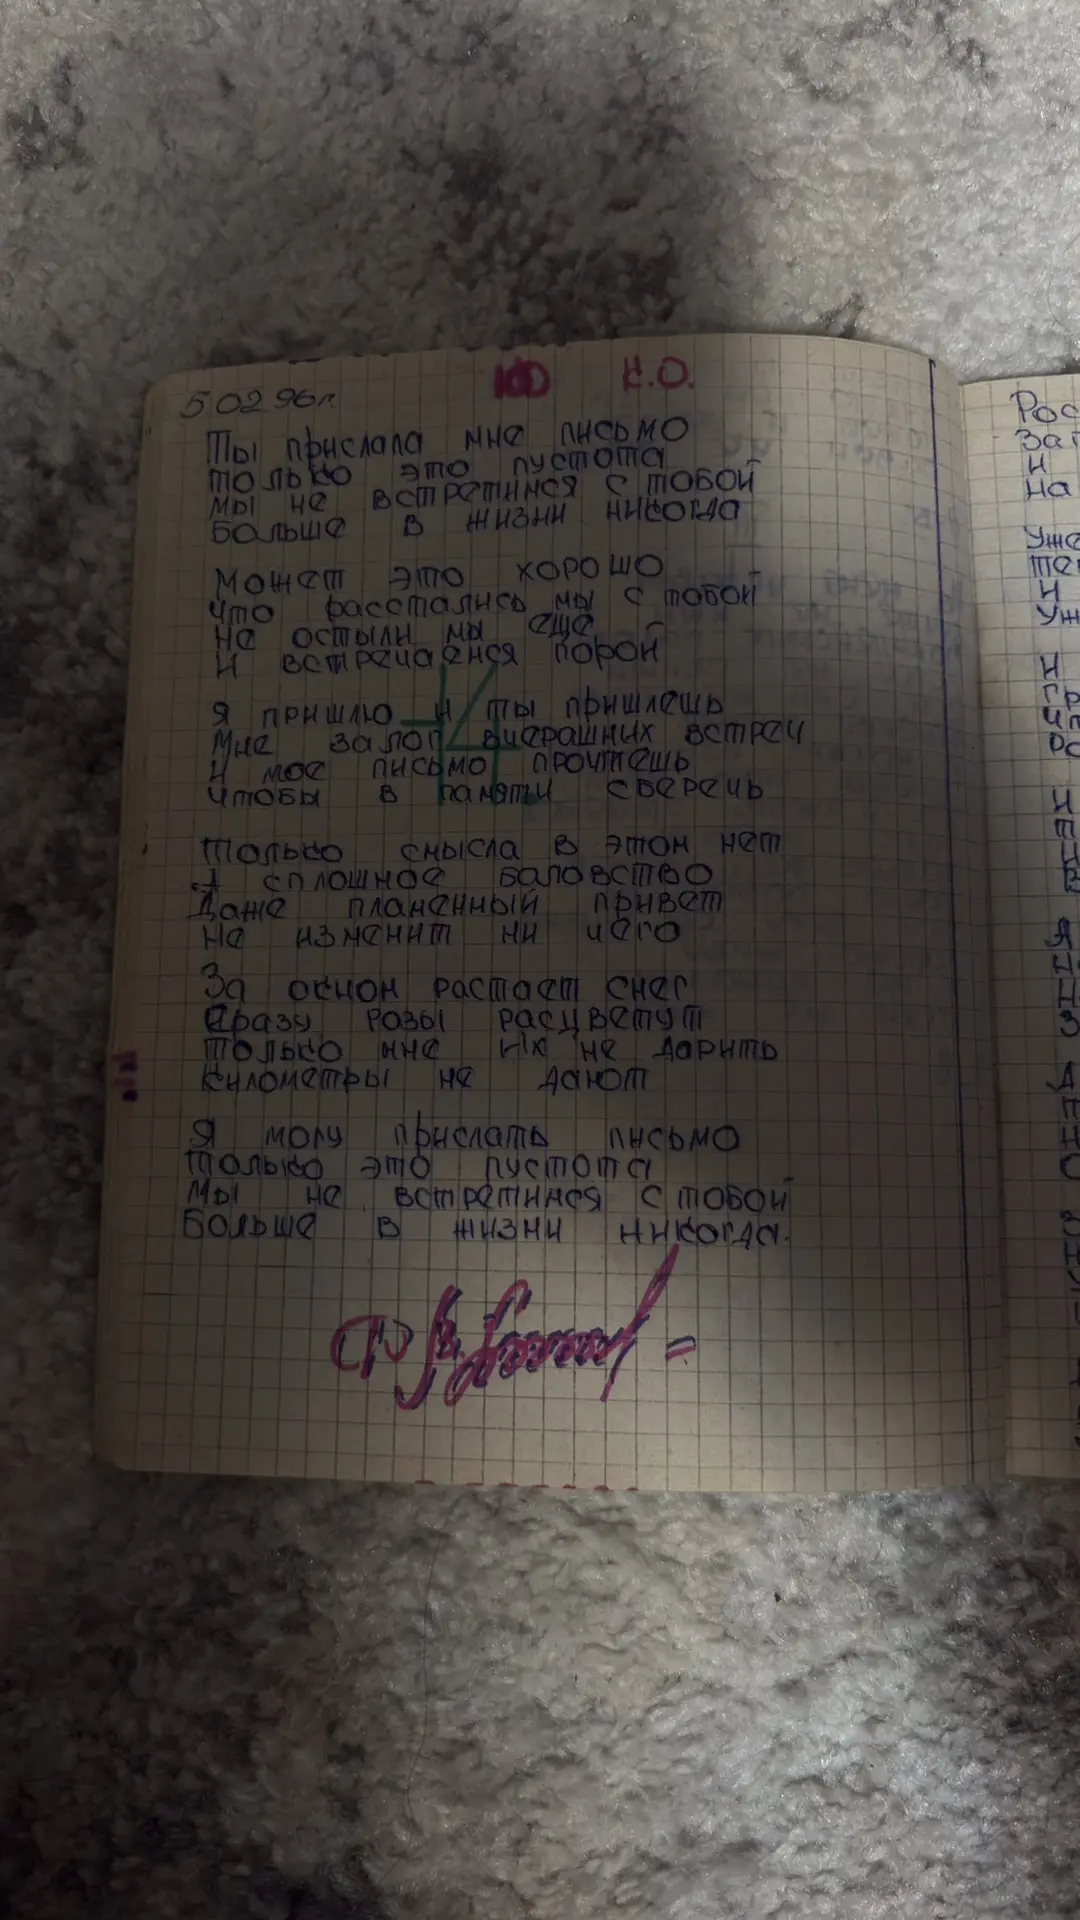 5.02.96г.
100 К.О.
Ты прислала мне письмо
только это пустота
мы не встретимся с тобой
больше в жизни никогда
Может это хорошо
что расстались мы с тобой
Не остыли мы еще
И встречаемся порой
Я пришлю и ты пришлешь
Мне залог вчерашних встреч
И мое письмо прочтешь
Чтобы в памяти сберечь
Только смысла в этом нет
А сплошное баловство
Даже пламенный привет
Не изменит ни чего
За окном растает снег
Сразу розы расцветут
Только мне их не дарить
Километры не дают
Я могу прислать письмо
Только это пустота
Мы не встретимся с тобой
Больше в жизни никогда.